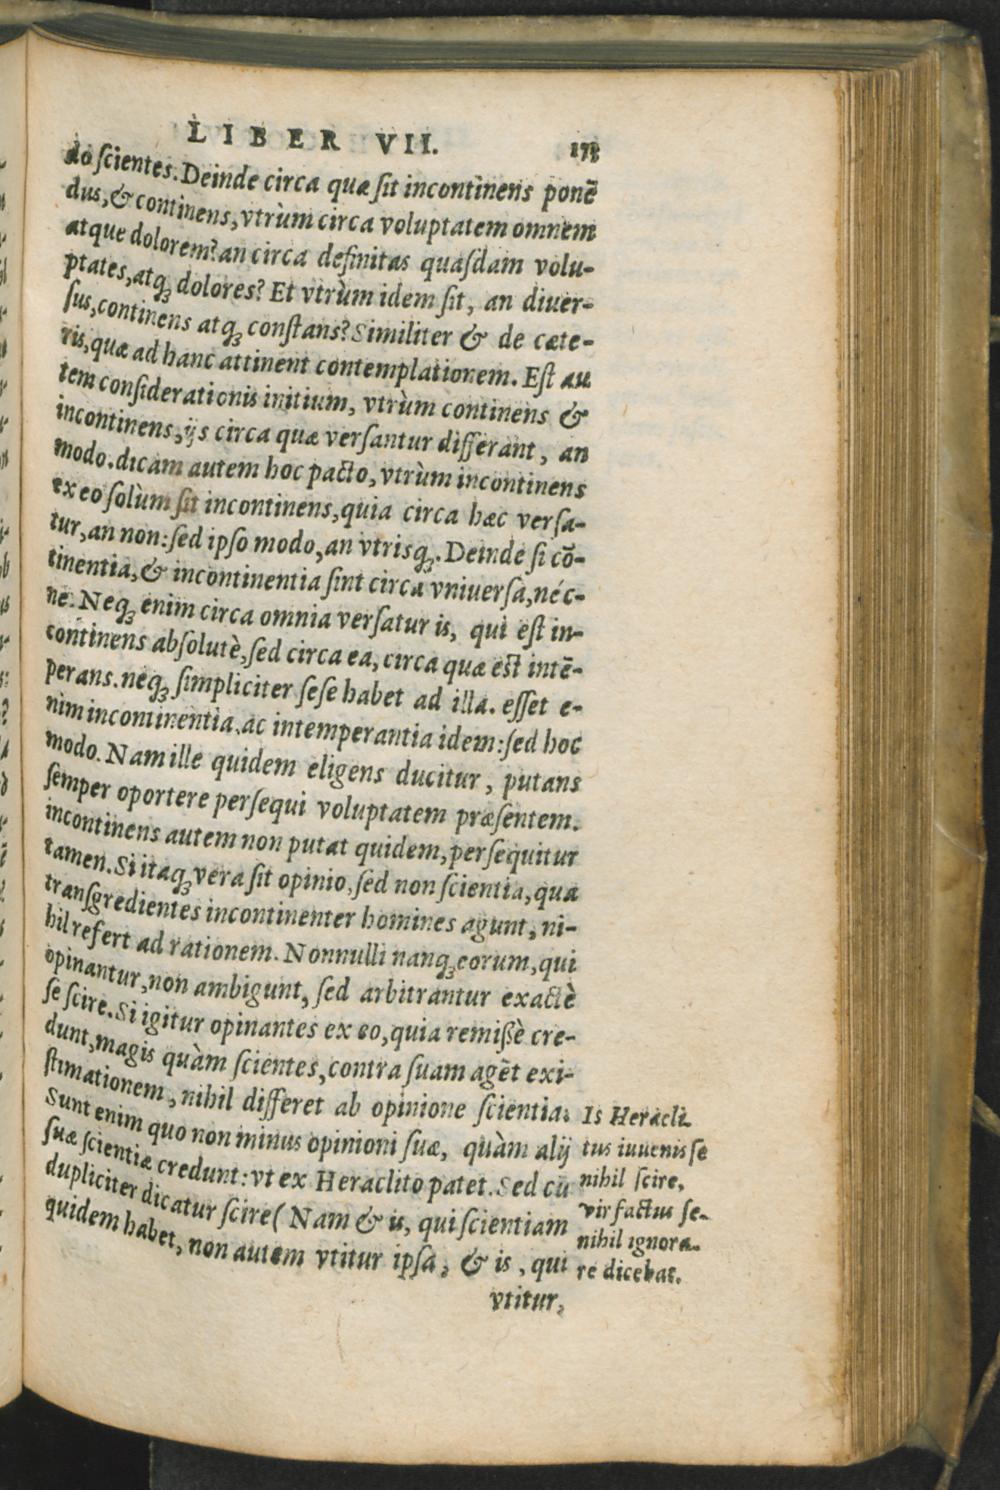 LIBER VII.
do ſcientes. Deinde circa quæ ſit incontinens ponē
dus, & continens, vtrùm circa voluptatem omnem
atque dolorem? an circa definitas quaſdam volu-
ptates, atq; dolores? Et vtrùm idem ſit, an diuer-
ſus, continens atq; conſtans? Similiter & de cæte-
ris, quæ ad hanc attinent contemplationem. Eſt au
tem conſiderationis initium, vtrùm continens &
incontinens, ijs circa quæ verſantur differant, an
modo. dicam autem hoc pacto, vtrùm incontinens
ex eo ſolùm ſit incontinens, quia circa hæc verſa-
tur, an non: ſed ipſo modo, an vtrisq;. Deinde ſi cō-
tinentia, & incontinentia ſint circa vniuerſa, néc-
ne. Neq; enim circa omnia verſatur is, qui eſt in-
continens abſolutè, ſed circa ea, circa quæ eſt intē-
perans. neq; ſimpliciter ſeſe habet ad illa. eſſet e-
nim incontinentia, ac intemperantia idem: ſed hoc
modo. Nam ille quidem eligens ducitur, putans
ſemper oportere perſequi voluptatem præſentem.
incontinens autem non putat quidem, perſequitur
tamen. Si itaq; vera ſit opinio, ſed non ſcientia, qua
tranſgredientes incontinenter homines agunt, ni-
hil refert ad rationem. Nonnulli nanq; eorum, qui
opinantur, non ambigunt, ſed arbitrantur exactè
ſe ſcire. Si igitur opinantes ex eo, quia remißè cre-
dunt, magis quàm ſcientes, contra ſuam agēt exi-
ſtimationem, nihil differet ab opinione ſcientia.
Sunt enim quo non minus opinioni ſuæ, quàm alij
ſuæ ſcientiæ credunt: vt ex Heraclito patet. Sed cū
dupliciter dicatur ſcire (Nam & is, qui ſcientiam
quidem habet, non autem vtitur ipſa, & is, qui
vtitur,
Is Heracli
tus iuuenis ſe
nihil ſcire,
vir factus ſe
nihil ignora-
re dicebat.